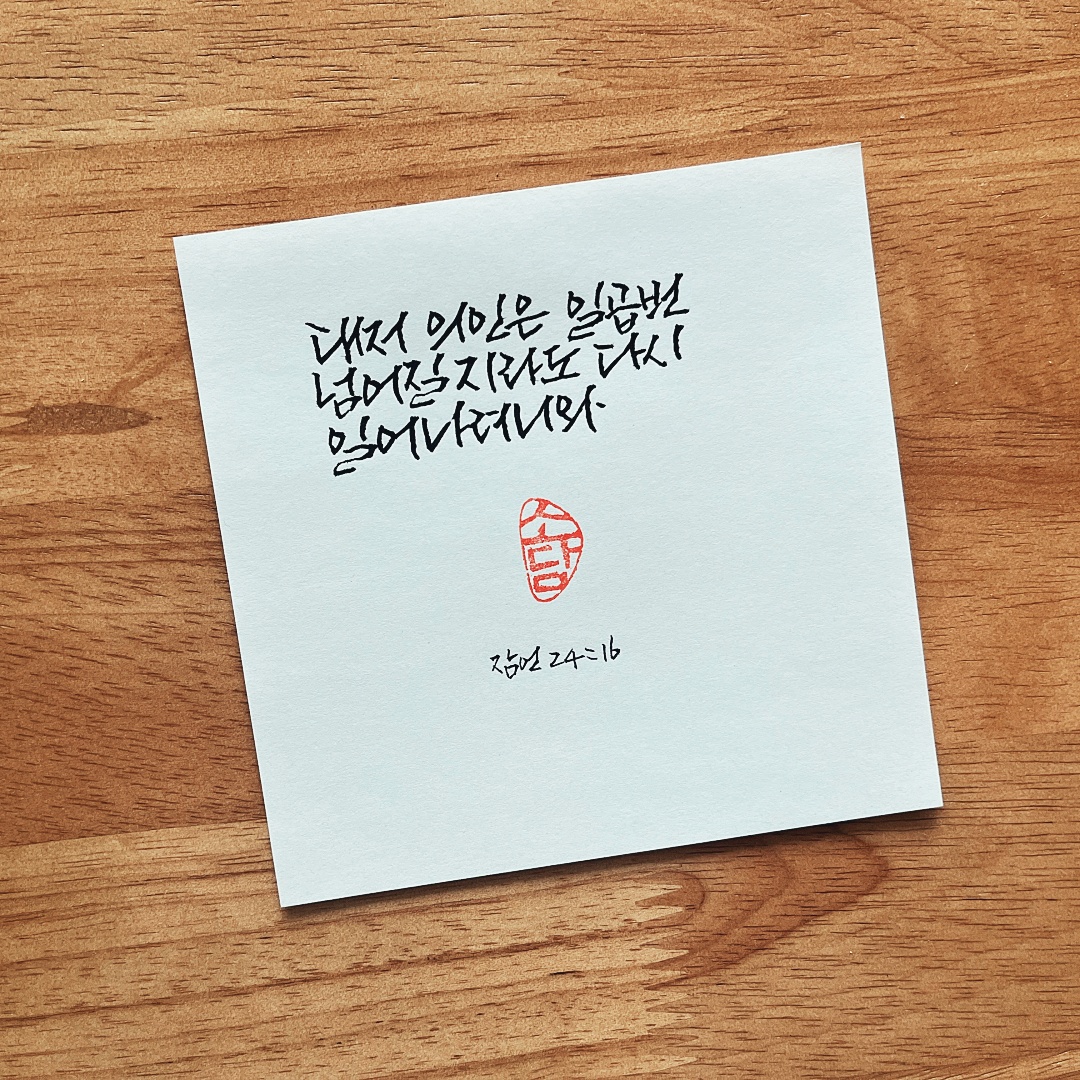 대저 의인은 일곱번
넘어질지라도 다시
일어나려니와
소담
잠언 24:16